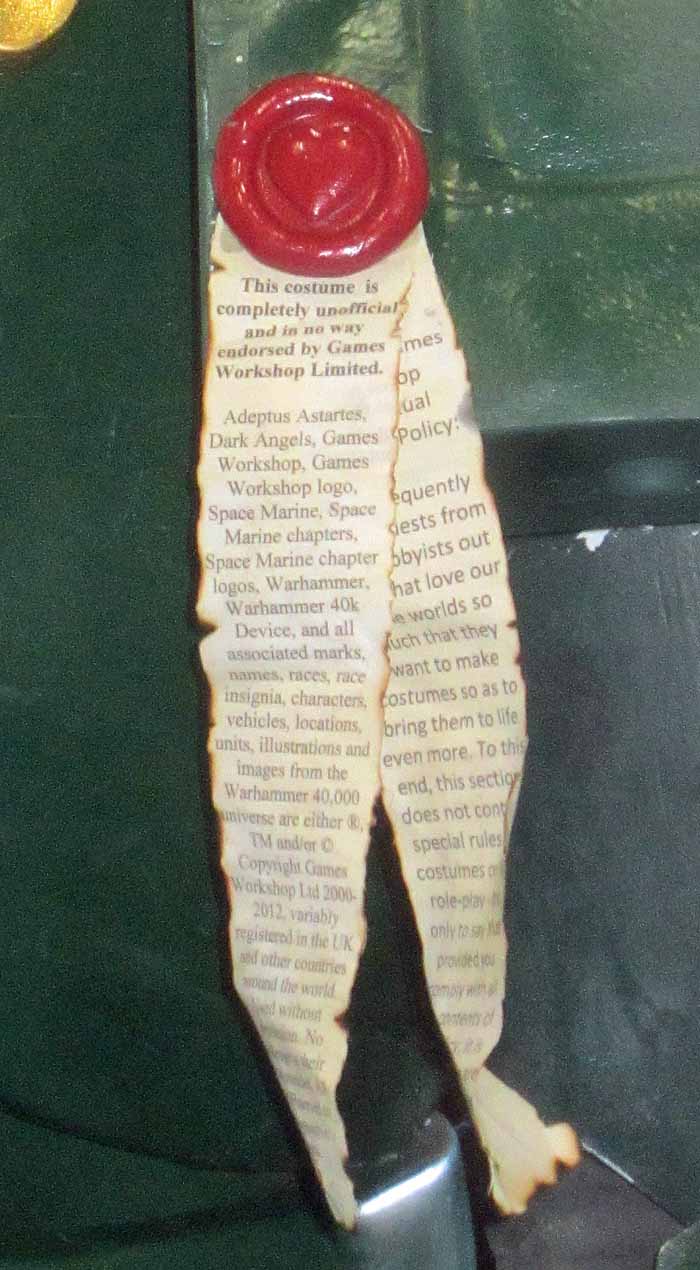 This costume is
completely unofficial
and in no way
endorsed by Games
Workshop Limited.
Adeptus Astartes,
Dark Angels, Games
Workshop, Games
Workshop logo,
Space Marine, Space
Marine chapters,
Space Marine chapter
logos, Warhammer,
Warhammer 40k
Device, and all
associated marks,
names, races, race
insignia, characters,
vehicles, locations,
units, illustrations and
images from the
Warhammer 40,000
universe are either ®,
TM and/or ©
Copyright Games
Workshop Ltd 2000-
2012, variably
registered in the UK
and other countries
around the world.
without
No
mes
op
ual
Policy:
equently
ests from
bbyists out
hat love our
e worlds so
uch that they
want to make
costumes so as to
bring them to life
even more. To this
end, this section
does not cont
special rules
costumes
role-play
only to say that
provided you
comply with all
contents of